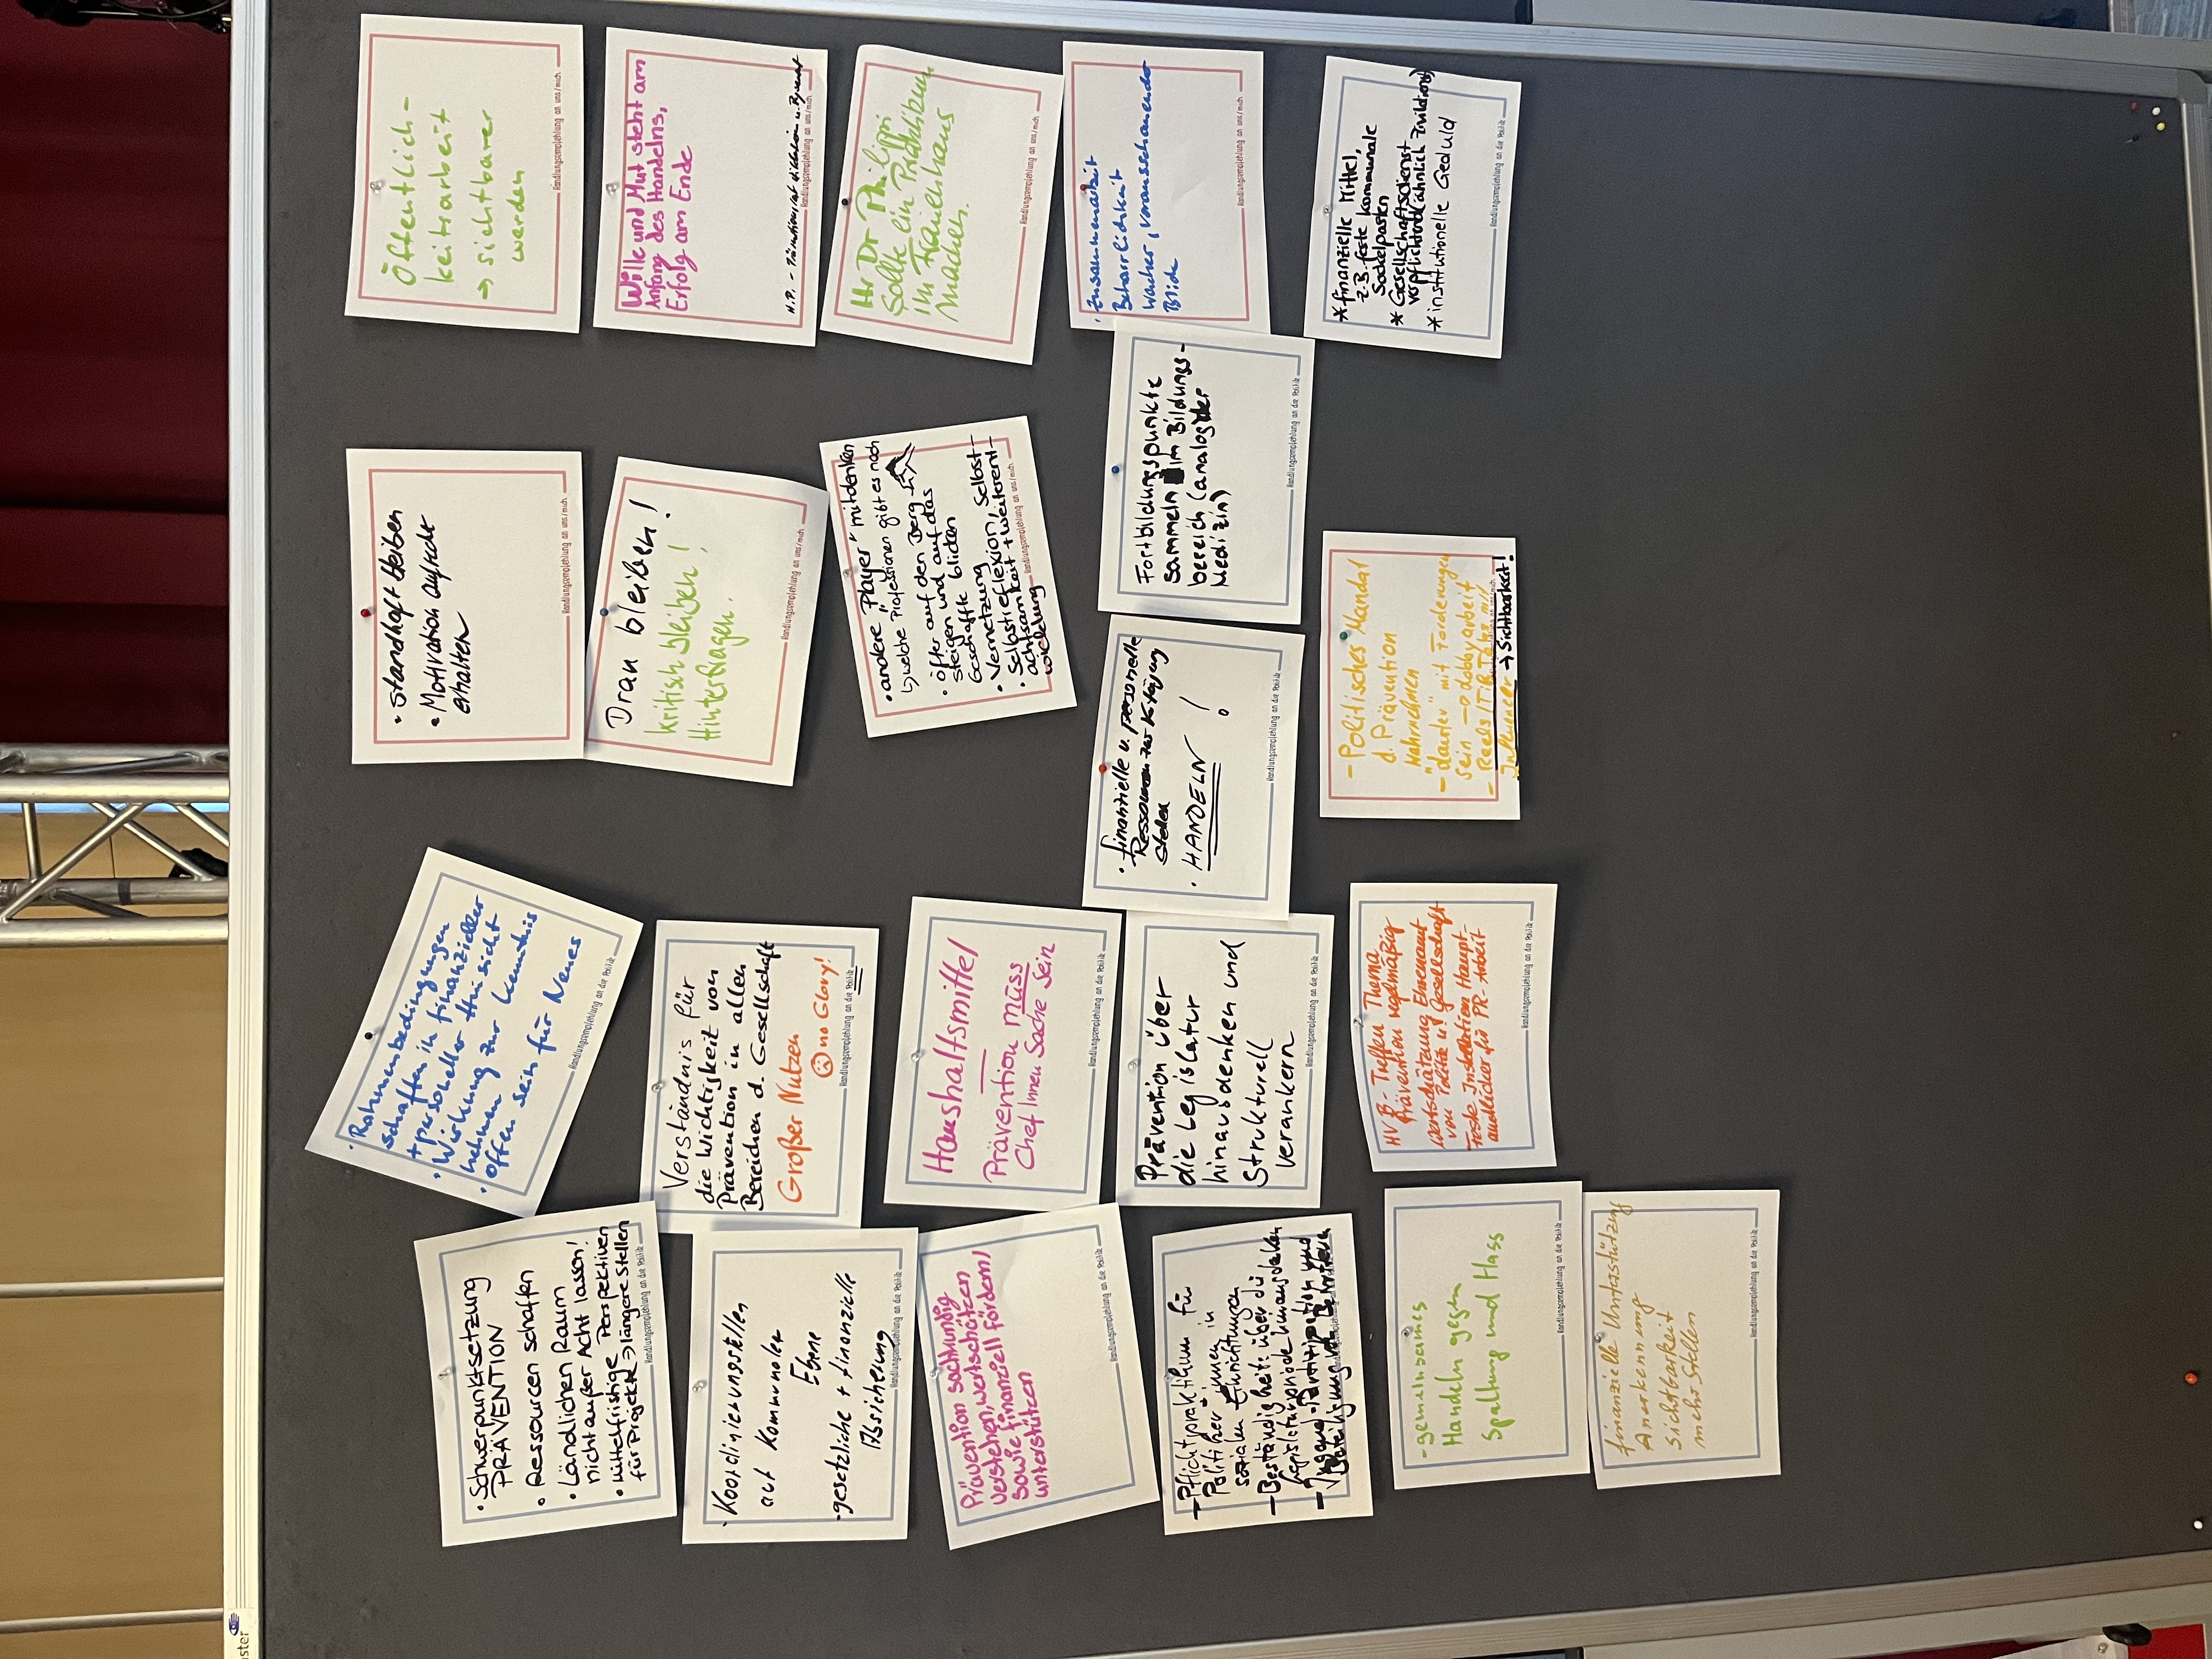 • Schwerpunktsetzung
PRÄVENTION
• Ressourcen schaffen
• Ländlichen Raum
nicht außer Acht lassen!
• Mittelfristige Perspektiven
für Projekte → längere Stellen
Handlungsempfehlung an die Politik
• Rahmenbedingungen
schaffen in finanzieller
+ personeller Hinsicht
• Wirkung zur Kenntnis
nehmen
• offen sein für Neues
Handlungsempfehlung an die Politik
• Standhaft bleiben
• Motivation aufrecht
erhalten
Handlungsempfehlung an uns/mich
Öffentlich-
keitsarbeit
→ sichtbarer
werden
Handlungsempfehlung an uns/mich
• Koordinierungsstellen
auf kommunaler
Ebene
• gesetzliche + finanzielle
Absicherung
Handlungsempfehlung an die Politik
Verständnis für
die Wichtigkeit von
Prävention in allen
Bereichen d. Gesellschaft
Großer Nutzen
no Glory!
Handlungsempfehlung an die Politik
Dran bleiben!
kritisch bleiben!
Hinterfragen.
Handlungsempfehlung an uns/mich
Wille und Mut steht am
Anfang des Handelns,
Erfolg am Ende
Handlungsempfehlung an uns/mich
Prävention sachkundig
verstehen, wertschätzen
sowie finanziell fördern/
unterstützen
Handlungsempfehlung an die Politik
Haushaltsmittel
Prävention muss
Chef Innen Sache sein
Handlungsempfehlung an die Politik
• andere "Player" mitdenken
↳ welche Professionen gibt es noch
• öfter auf den Berg
steigen und auf das
Geschaffte blicken
• Vernetzung
• Selbstreflexion, Selbst-
achtsamkeit + Weiterent-
wicklung
Handlungsempfehlung an uns/mich
Hr Dr Philippi
sollte ein Praktikum
im Frauenhaus
machen.
Handlungsempfehlung an uns/mich
– Pflichtpraktikum für
Politiker*innen in
sozialen Einrichtungen
– Beständigkeit: über die
Legislaturperiode hinausdenken
– Jugend-Partizipation und
Beteiligung von
Prävention über
die Legislatur
hinausdenken und
strukturell
verankern
Handlungsempfehlung an die Politik
• finanzielle u. personelle
Ressourcen zur Verfügung
stellen
• HANDELN !
Handlungsempfehlung an die Politik
Fortbildungspunkte
sammeln im Bildungs-
bereich (analog der
Medizin)
Handlungsempfehlung an die Politik
• Zusammenarbeit
Beharrlichkeit
wacher, vorausschauender
Blick
Handlungsempfehlung an uns/mich
- gemeinsames
Handeln gegen
Spaltung und Hass
Handlungsempfehlung an die Politik
HVB-Treffen Thema
Prävention regelmäßig
Wertschätzung Ehrenamt
von Politik u. Gesellschaft
feste Installation Haupt-
amtlicher für PR-Arbeit
Handlungsempfehlung an die Politik
- Politisches Mandat
d. Prävention
wahrnehmen
- "lauter" mit Forderungen
sein → Lobbyarbeit
- Reels
Influencer → Sichtbarkeit!
* finanzielle Mittel,
z.B. feste kommunale
Sockelposten
* Gesellschaftsdienst
verpflichtend (ähnlich Zivildienst)
* institutionelle Geduld
Handlungsempfehlung an die Politik
finanzielle Unterstützung
Anerkennung
Sichtbarkeit
mehr Stellen
Handlungsempfehlung an die Politik